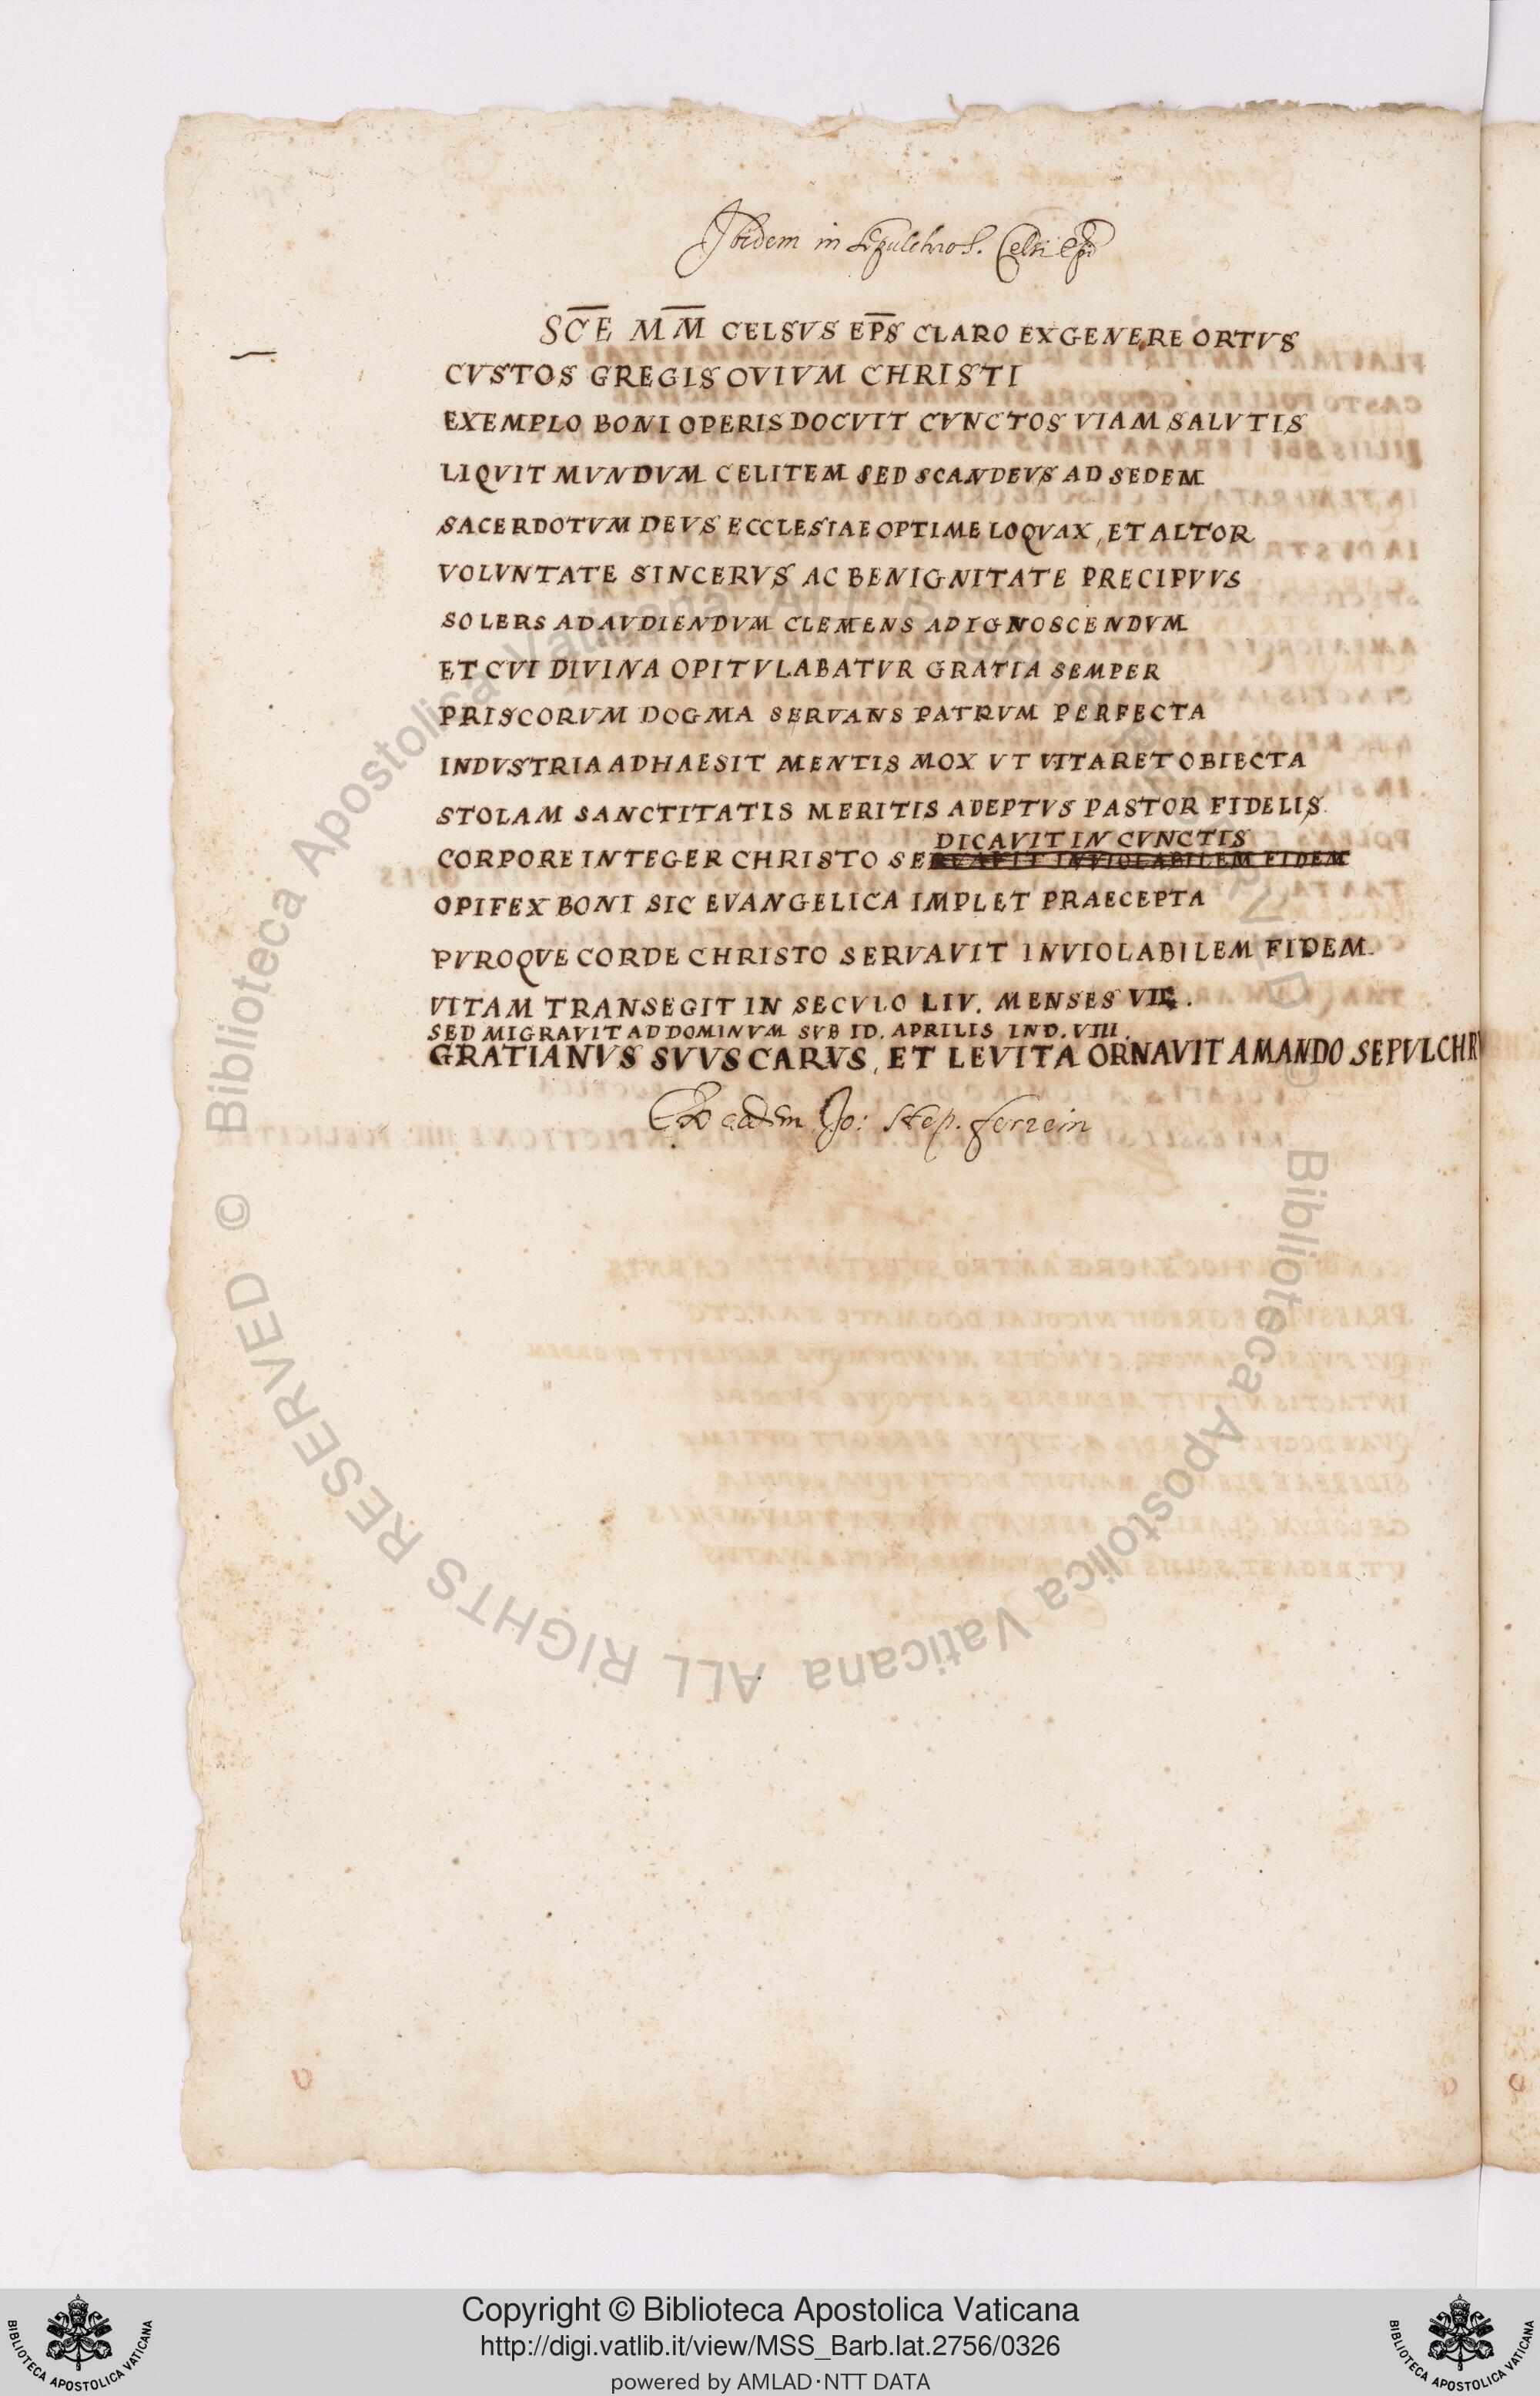 Ibidem in sepulchro S. Celsi Epi
SC̅E M̅M̅ CELSVS EP̅S CLARO EXGENERE ORTVS
CVSTOS GREGIS OVIVM CHRISTI
EXEMPLO BONI OPERIS DOCVIT CVNCTOS VIAM SALVTIS
LIQVIT MVNDVM CELITEM SED SCANDEVS AD SEDEM
SACERDOTVM DEVS ECCLESIAE OPTIME LOQVAX, ET ALTOR
VOLVNTATE SINCERVS AC BENIGNITATE PRECIPVVS
SOLERS AD AVDIENDVM CLEMENS AD IGNOSCENDVM
ET CVI DIVINA OPITVLABATVR GRATIA SEMPER
PRISCORVM DOGMA SERVANS PATRVM PERFECTA
INDVSTRIA ADHAESIT MENTIS MOX VT VITARET OBIECTA
STOLAM SANCTITATIS MERITIS ADEPTVS PASTOR FIDELIS
DICAVIT IN CVNCTIS
CORPORE INTEGER CHRISTO SERVAVIT INVIOLABILEM FIDEM
OPIFEX BONI SIC EVANGELICA IMPLET PRAECEPTA
PVROQVE CORDE CHRISTO SERVAVIT INVIOLABILEM FIDEM
VITAM TRANSEGIT IN SECVLO LIV. MENSES VII.
SED MIGRAVIT AD DOMINVM SVB ID. APRILIS IND. VIII.
GRATIANVS SVVS CARVS, ET LEVITA ORNAVIT AMANDO SEPVLCHRV
Ex eadem Jo: Step. ferrein
Biblioteca Apostolica Vaticana ALL RIGHTS RESERVED ©
Biblioteca Apostolica Vaticana ALL RIGHTS RESERVED ©
Copyright © Biblioteca Apostolica Vaticana
http://digi.vatlib.it/view/MSS_Barb.lat.2756/0326
powered by AMLAD·NTT DATA
BIBLIOTECA APOSTOLICA VATICANA
BIBLIOTECA APOSTOLICA VATICANA